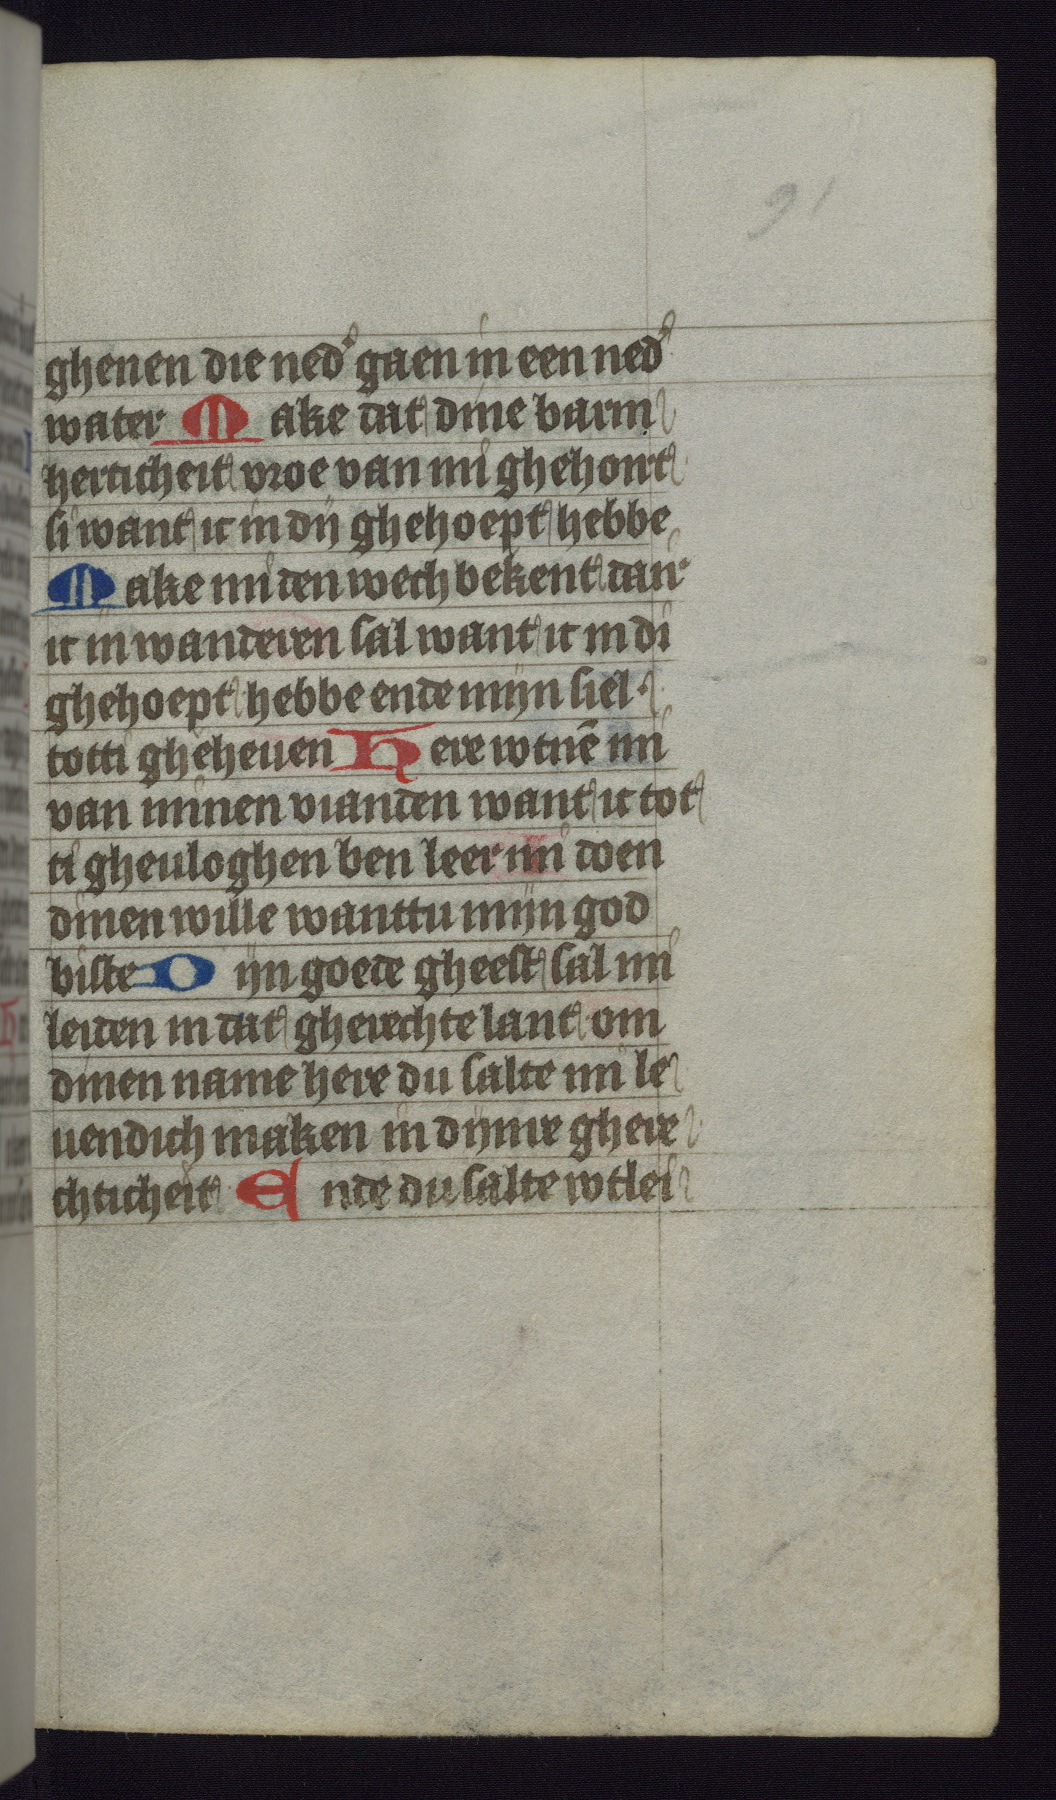 91
ghenen die ned' gaen in een ned'
water Make dat dine barm
herticheit vroe van mi ghehoert
si want ic in dij ghehoept hebbe
Make mi den wech bekent dair
ic in wanderen sal want ic in di
ghehoept hebbe ende mijn siel
totti gheheuen Here wtnē mi
van minen vianden want ic tot
ti gheuloghen ben leer mi doen
dinen wille wanttu mijn god
biste Dijn goede gheest sal mi
leiden in dat gherechte lant om
dinen name here du salte mi le
uendich maken in dijnre ghere
chticheit Ende du salte wtlei